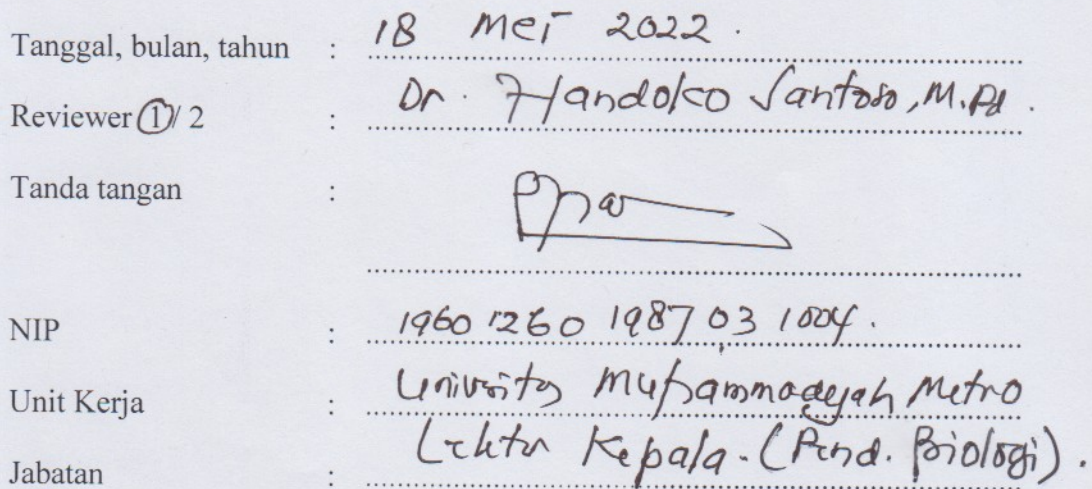 Tanggal, bulan, tahun : 18 Mei 2022.
Reviewer 1/ 2 : Dr. Handoko Santoso, M.Pd.
Tanda tangan :
NIP : 1960 1260 1987 03 1004.
Unit Kerja : Universitas Muhammadiyah Metro
Jabatan : Lektor Kepala. (Pend. Biologi).